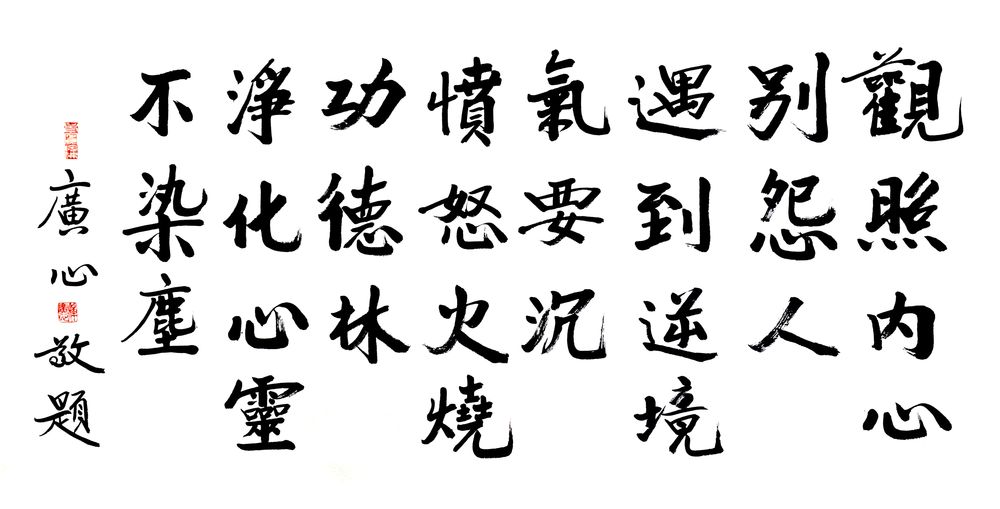 觀照內心
別怨人
遇到逆境
氣要沉
憤怒火燒
功德林
淨化心靈
不染塵
廣心敬題